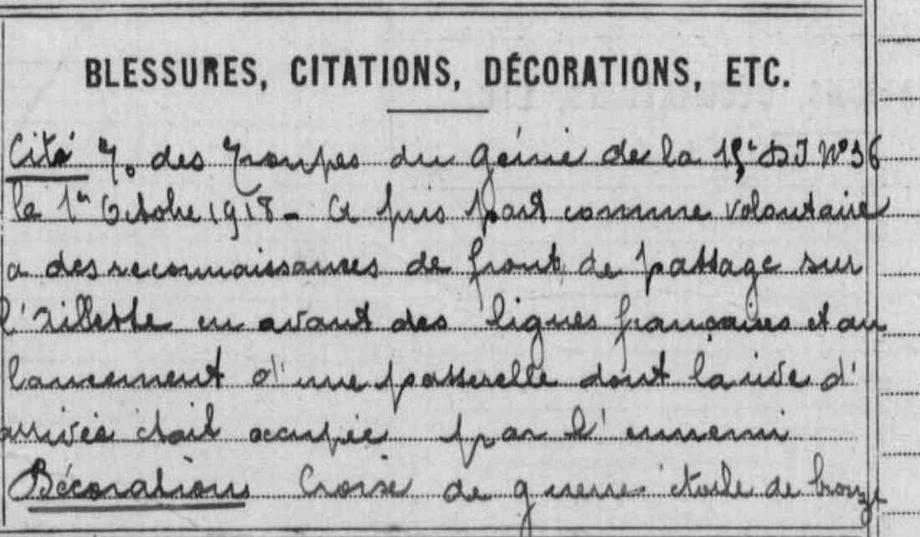 BLESSURES, CITATIONS, DÉCORATIONS, ETC.
Cité O. des Troupes du Génie de la DI N°36
le 1er Octobre 1918 - A pris part comme volontaire
a des reconnaissances de front de passage sur
l'Ailette en avant des lignes françaises et au
lancement d'une passerelle dont la rive d'
arrivée était occupée par l'ennemi
Décorations Croix de guerre étoile de bronze